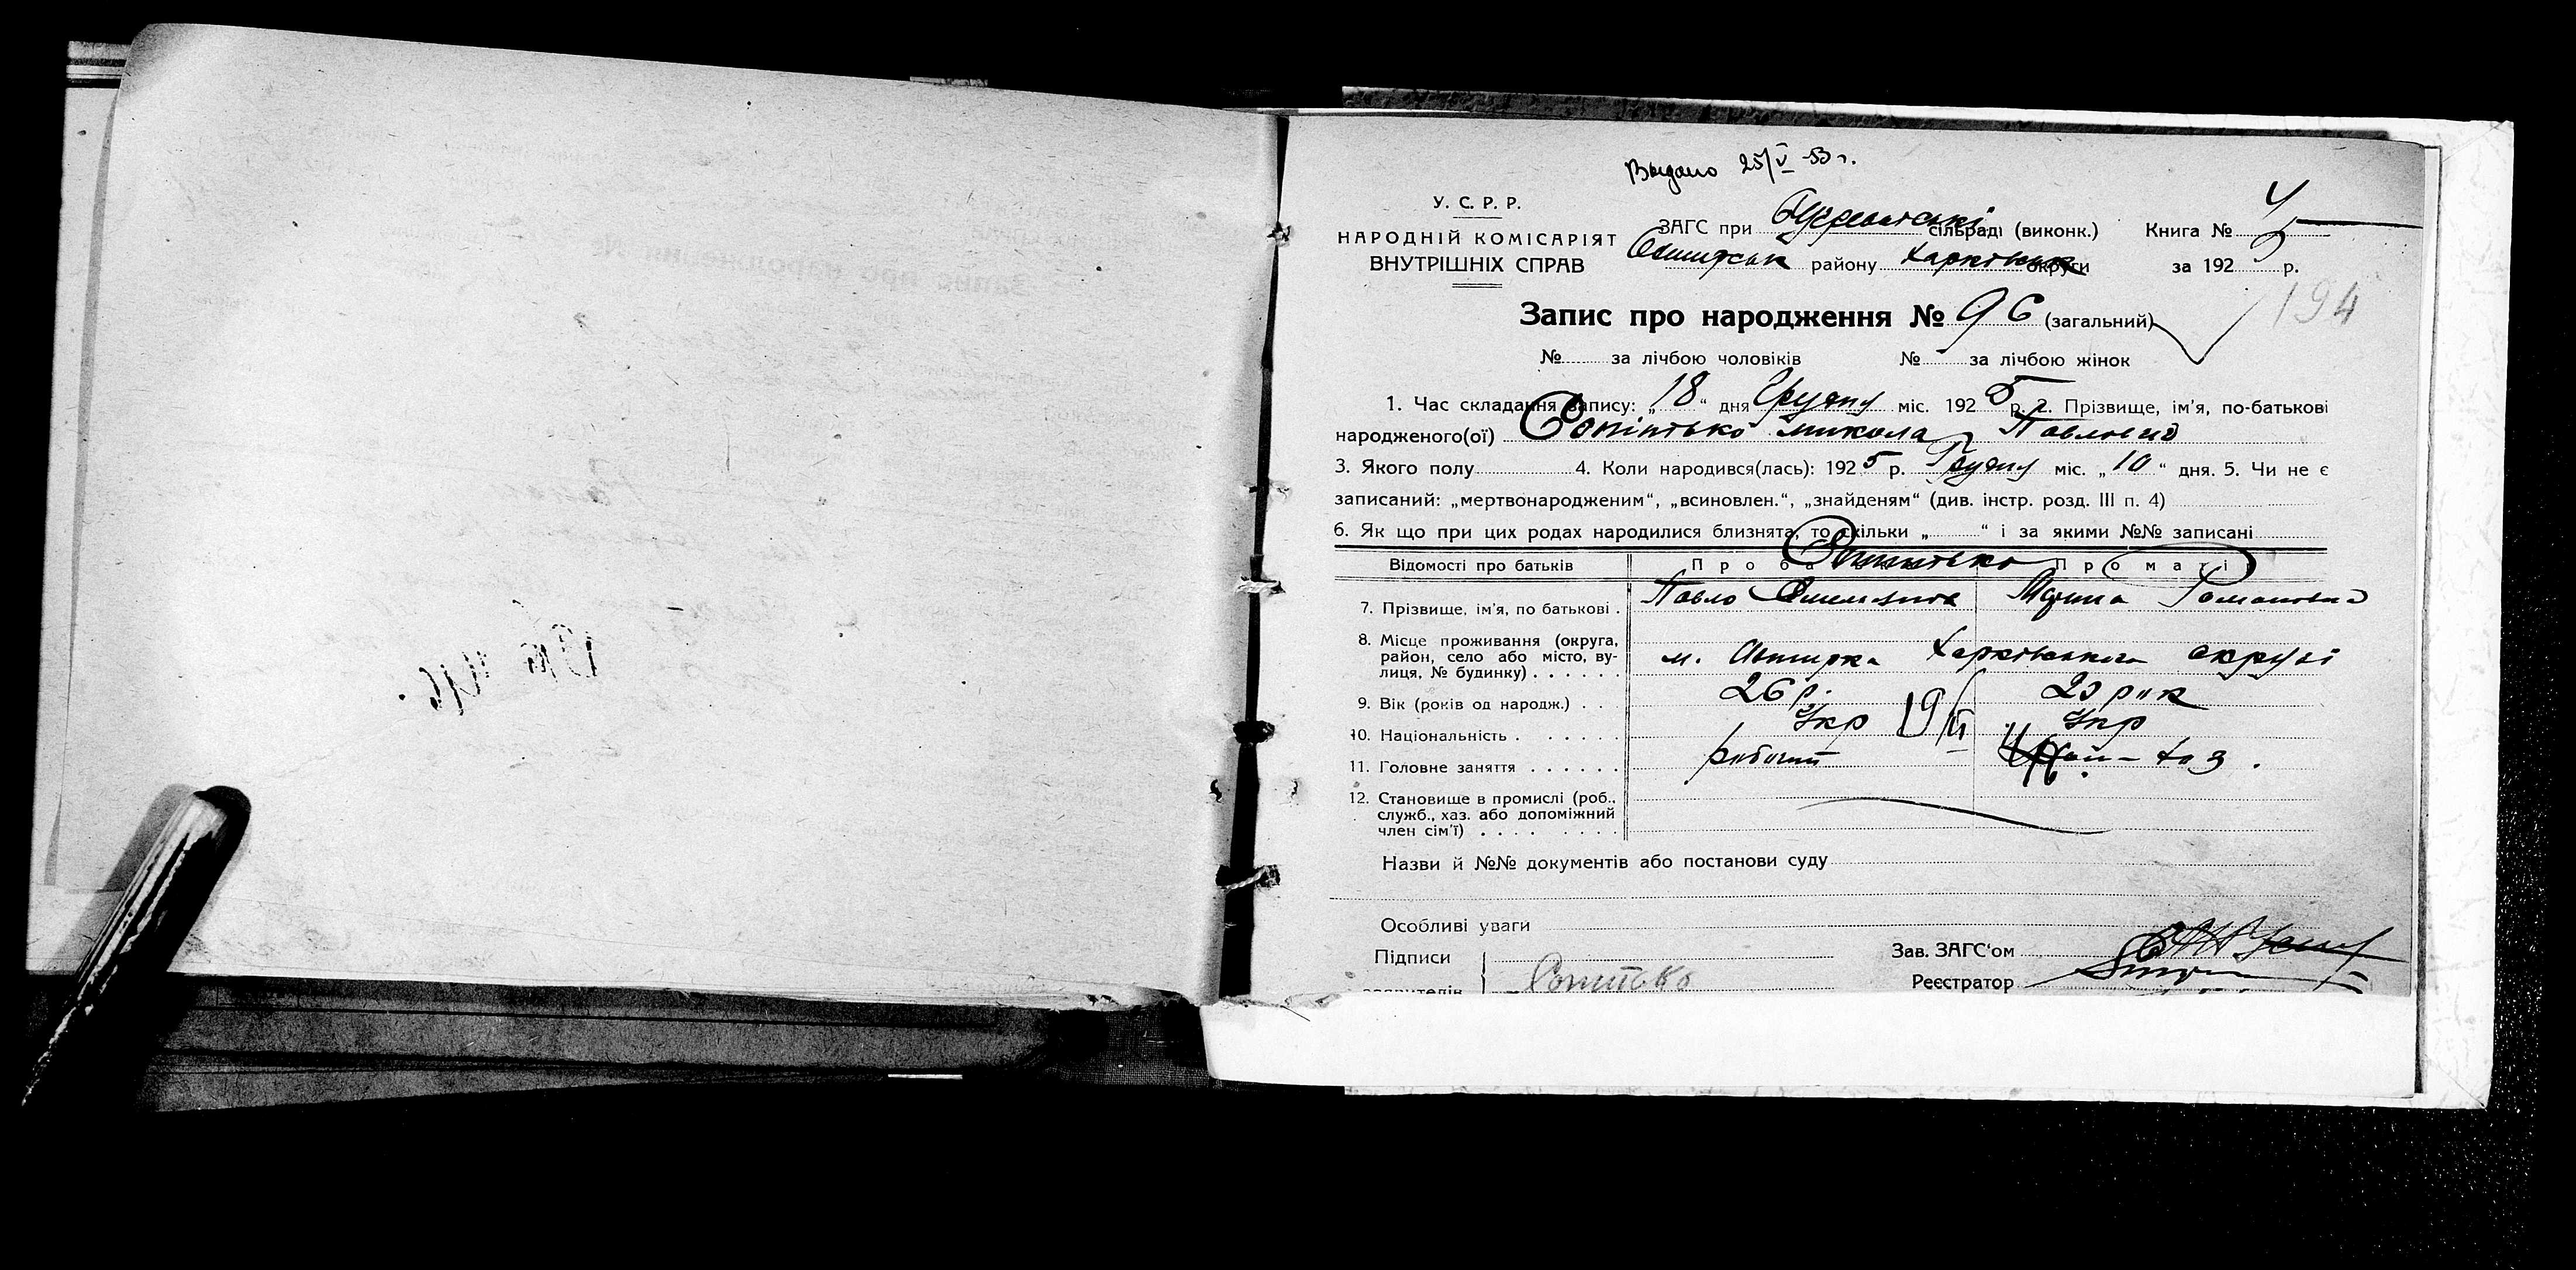 Выдано 25/V 53 г.
У. С. Р. Р.
НАРОДНІЙ КОМІСАРІЯТ
ВНУТРІШНІХ СПРАВ
ЗАГС при сільраді (виконк.) Книга №
району Харківськ округи за 192 5 р.
Запис про народження № 96 (загальний)
194
№ за лічбою чоловіків № за лічбою жінок
1. Час складання запису: „18“ дня Грудня міс. 1925 р. 2. Прізвище, ім'я, по-батькові
народженого(ої) Сопітько Микола Павлович
3. Якого полу 4. Коли народився(лась): 1925 р. Грудня міс. „10“ дня. 5. Чи не є
записаний: „мертвонародженим“, „всиновлен.“, „знайденям“ (див. інстр. розд. III п. 4)
6. Як що при цих родах народилися близнята, то скільки „ “ і за якими №№ записані
Відомості про батьків Про батька Про матір
Сопитько
7. Прізвище, ім'я, по батькові . Павло Романовна
8. Місце проживання (округа,
район, село або місто, ву-
лиця, № будинку) . . . . . . м. Охтирка Харківської округи
9. Вік (років од народж.) . . . 26 р. рік
10. Національність . . . . . . Укр Укр
11. Головне заняття . . . . . . робочий
12. Становище в промислі (роб.,
служб., хаз. або допоміжний
член сім'ї) . . . . . . . .
Назви й №№ документів або постанови суду
Особливі уваги
Підписи Зав. ЗАГС'ом
заявителів Сопитько Реєстратор